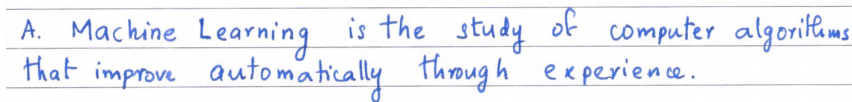 A. Machine Learning is the study of computer algorithms
that improve automatically through experience.